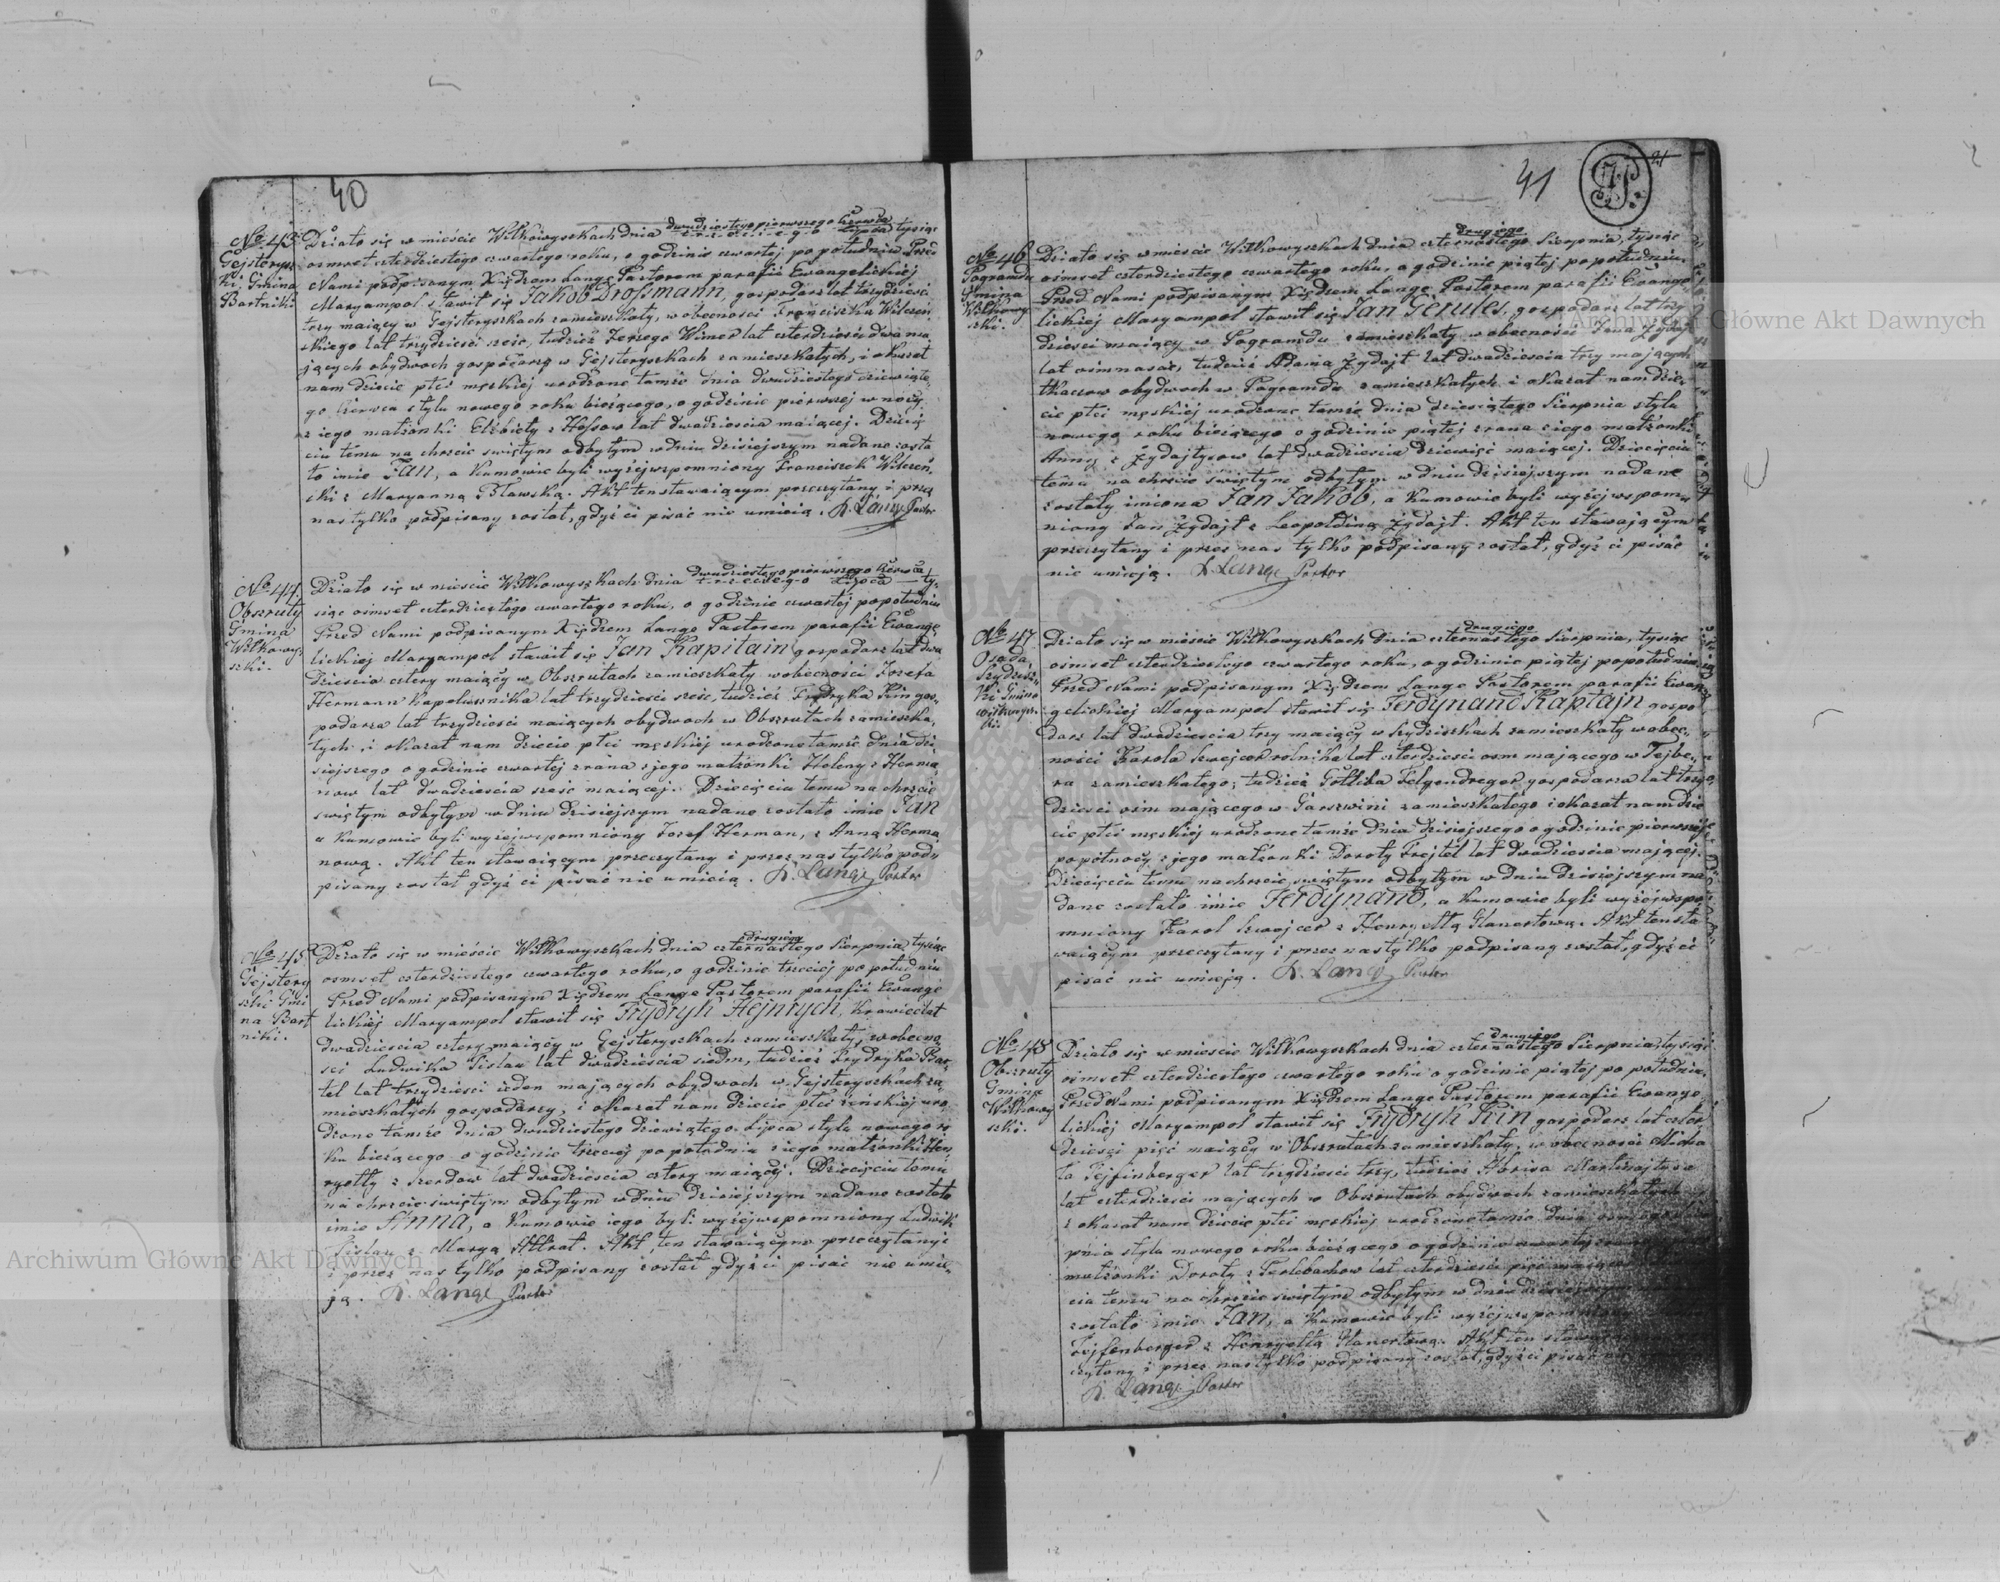 40
No 43.
Gejsterysz
ki Gmina
Bartniki
Działo się w mieście Wilkowyszkach dnia dwudziestego pierwszego Czerwca trzeciego Lipca tysiąc
osmset czterdziestego czwartego roku, o godzinie czwartej po południu Przed
Nami podpisanym Xiędzem Lange Pastorem parafii Ewangelickiej
Maryampol, stawił się Jakób Drossmann, gospodarz lat trzydzieści
trzy maiący w Gejsteryszkach zamieszkały, w obecności Franciszka Wilczeń
skiego lat trzydzieści sześć, tudzież Jerzego Wimer lat czterdzieści dwa ma
jących obydwóch gospodarzy w Gejsteryszkach zamieszkałych, i okazał
nam dziecie płci męzkiej urodzone tamże dnia dwudziestego dziewiąte
go Czerwca stylu nowego roku bieżącego, o godzinie pierwszej w nocy
z iego małżonki Elżbiety z Hofsow lat dwadzieścia maiącej. Dzieię
ciu temu na chrzcie świętym odbytym w dniu dzisiejszym nadane zosta
ło imie Jan, a Kumowie byli wyżejwspomniony Franciszek Wilczeń
ski z Maryanną Bławską. Akt ten stawaiącym przeczytany i przez
nas tylko podpisany został, gdyż ci pisać nie umieią. R. Lange Pastor
No 44.
Obszruty
Gmina
Wilkowy
szki.
Działo się w mieście Wilkowyszkach dnia dwudziestego pierwszego Czerwca trzeciego Lipca ty
siąc osmset czterdziestego czwartego roku, o godzinie czwartej popołudniu
Przed Nami podpisanym Xiędzem Lange Pastorem parafii Ewange
lickiej Maryampol stawił się Jan Kapitain gospodarz lat dwa
dzieścia cztery maiący w Obszrutach zamieszkały w obecności Jozefa
Hermann Kapelusznika lat trzydzieści sześć, tudzież Frydryka Kin gos
podarza lat trzydzieści maiących obydwóch w Obszrutach zamieszka
łych, i okazał nam dziecie płci męzkiej urodzone tamże dnia dzi
sieyszego o godzinie czwartej z rana z jego małżonki Heleny z Herma
now lat dwadzieścia sześć maiącej. Dziecięciu temu na chrzcie
świętym odbytym w dniu dzisiejszym nadane zostało imie Jan
a Kumowie byli wyżejwspomniony Jozef Herman, z Anną Herma
nową. Akt ten stawaiącym przeczytany i przez nas tylko pod
pisany został gdyż ci pisać nie umieią. R. Lange Pastor
No 45.
Gejstery
szki Gmi
na Bart
niki.
Działo się w mieście Wilkowyszkach dnia drugiego czternastego Sierpnia tysiąc
osmset czterdziestego czwartego roku, o godzinie trzeciej po południu
Przed Nami podpisanym Xiędzem Lange Pastorem parafii Ewange
lickiej Maryampol stawił się Frydryk Hejnrych, Krawiec lat
dwadzieścia cztery maiący w Gejsteryszkach zamieszkały, w obecno
ści Ludwika Sislau lat dwadzieścia siedm, tudzież Frydryka Bar
tel lat trzydzieści ieden maiących obydwóch w Gejsteryszkach za
mieszkałych gospodarzy, i okazał nam dziecie płci żeńskiej uro
dzone tamże dnia dwudziestego dziewiątego Lipca stylu nowego ro
ku bieżącego o godzinie trzeciej po południu z iego małżonki Hen
ryetty z Szerdow lat dwadzieścia cztery maiącej. Dziecięciu temu
na chrzcie świętym odbytym w dniu dzisiejszym nadane zostało
imie Anna, a Kumowie iego byli wyżejwspomniony Ludwik
Sislau z Maryą Attrat. Akt ten stawaiącym przeczytany
i przez nas tylko podpisany został gdyż ci pisać nie umie
ją. R. Lange Pastor
41
21
No 46
Pogramdu
Gmina
Wilkowy
szki.
Działo się w mieście Wilkowyszkach dnia drugiego czternastego Sierpnia, tysiąc
osmset czterdziestego czwartego roku, o godzinie piątej popołudniu.
Przed Nami podpisanym Xiędzem Lange Pastorem parafii Ewange
lickiej Maryampol stawił się Jan Gerulles, gospodarz lat trzy
dzieści maiący w Pogramdu zamieszkały w obecności Jana Zydajt
lat osimnaść, tudzież Adama Zydajt lat dwadzieścia trzy mających
tkaczow obydwóch w Pogramdu zamieszkałych i okazał nam dzie
cie płci męzkiej urodzone tamże dnia dziesiątego Sierpnia stylu
nowego roku bieżącego o godzinie piątej zrana z iego małżonki
Anny z Zydajtysow lat dwadzieścia dziewięć maiącej. Dziecięciu
temu na chrzcie świętym odbytym w dniu dzisiejszym nadane
zostały imiona Jan Jakób, a Kumowie byli wyżej wspom
niony Jan Zydajt z Leopoldiną Zydajt. Akt ten stawającym
przeczytany i przez nas tylko podpisany został, gdyż ci pisać
nie umieją. R. Lange Pastor
No 47.
Osada
Szydzisz
ki Gmina
Wilkowysz
ki.
Działo się w mieście Wilkowyszkach dnia drugiego czternastego Sierpnia, tysiąc
osmset czterdziestego czwartego roku, o godzinie piątej popołudniu
Przed Nami podpisanym Xiędzem Lange Pastorem parafii Ewan
gelickiej Maryampol stawił się Ferdynand Kaptajn gospo
darz lat dwadzieścia trzy maiący w Szydziszkach zamieszkały w obec
ności Karola Szwejcer rolnika lat czterdzieści osm mającego w Tejbe
ra zamieszkałego; tudzież Gotliba Felgendreger gospodarza lat trzy
dzieści osim mającego w Garszwini zamieszkałego i okazał nam dzie
cie płci męzkiej urodzone tamże dnia dzisiejszego o godzinie pierwszej
popółnocy z jego małżonki Doroty Frejtel lat dwadzieścia mającej.
Dziecięciu temu na chrzcie świętym odbytym w dniu dzisiejszym na
dane zostało imie Ferdynand, a Kumowie byli wyżejwspo
mniony Karol Szwejcer z Henryettą Hanertową. Akt ten sta
waiącym przeczytany i przez nas tylko podpisany został, gdyż ci
pisać nie umieją. R. Lange Pastor
No 48
Obszruty
Gmina
Wilkowy
szki.
Działo się w mieście Wilkowyszkach dnia drugiego czternastego Sierpnia, tysiąc
osmset czterdziestego czwartego roku o godzinie piątej po południu,
Przed Nami podpisanym Xiędzem Lange Pastorem parafii Ewange
lickiej Maryampol stawił się Frydryk Kin gospodarz lat czter
dzieści pięć maiący w Obszrutach zamieszkały, w obecności Micha
ła Tejfinberger lat trzydzieści trzy, tudzież Maritnajtysa
lat czterdzieści mających w Obszrutach obydwóch zamieszkałych
i okazał nam dziecie płci męzkiej urodzone tamże dnia osmego Sier
pnia stylu nowego roku bieżącego o godzinie czwartej
małżonki Doroty z Terlebachow lat czterdzieści pięć maiącej
cia temu na chrzcie świętym odbytym w dniu dzisiejszym
zostało imie Jan, a Kumowie byli wyżej wspom
Tejfenberger z Henryettą Hanertową. Akt ten stawa
czytany i przez nas tylko podpisany został, gdyż ci pisać
R. Lange Pastor
Archiwum Główne Akt Dawnych
Archiwum Główne Akt Dawnych